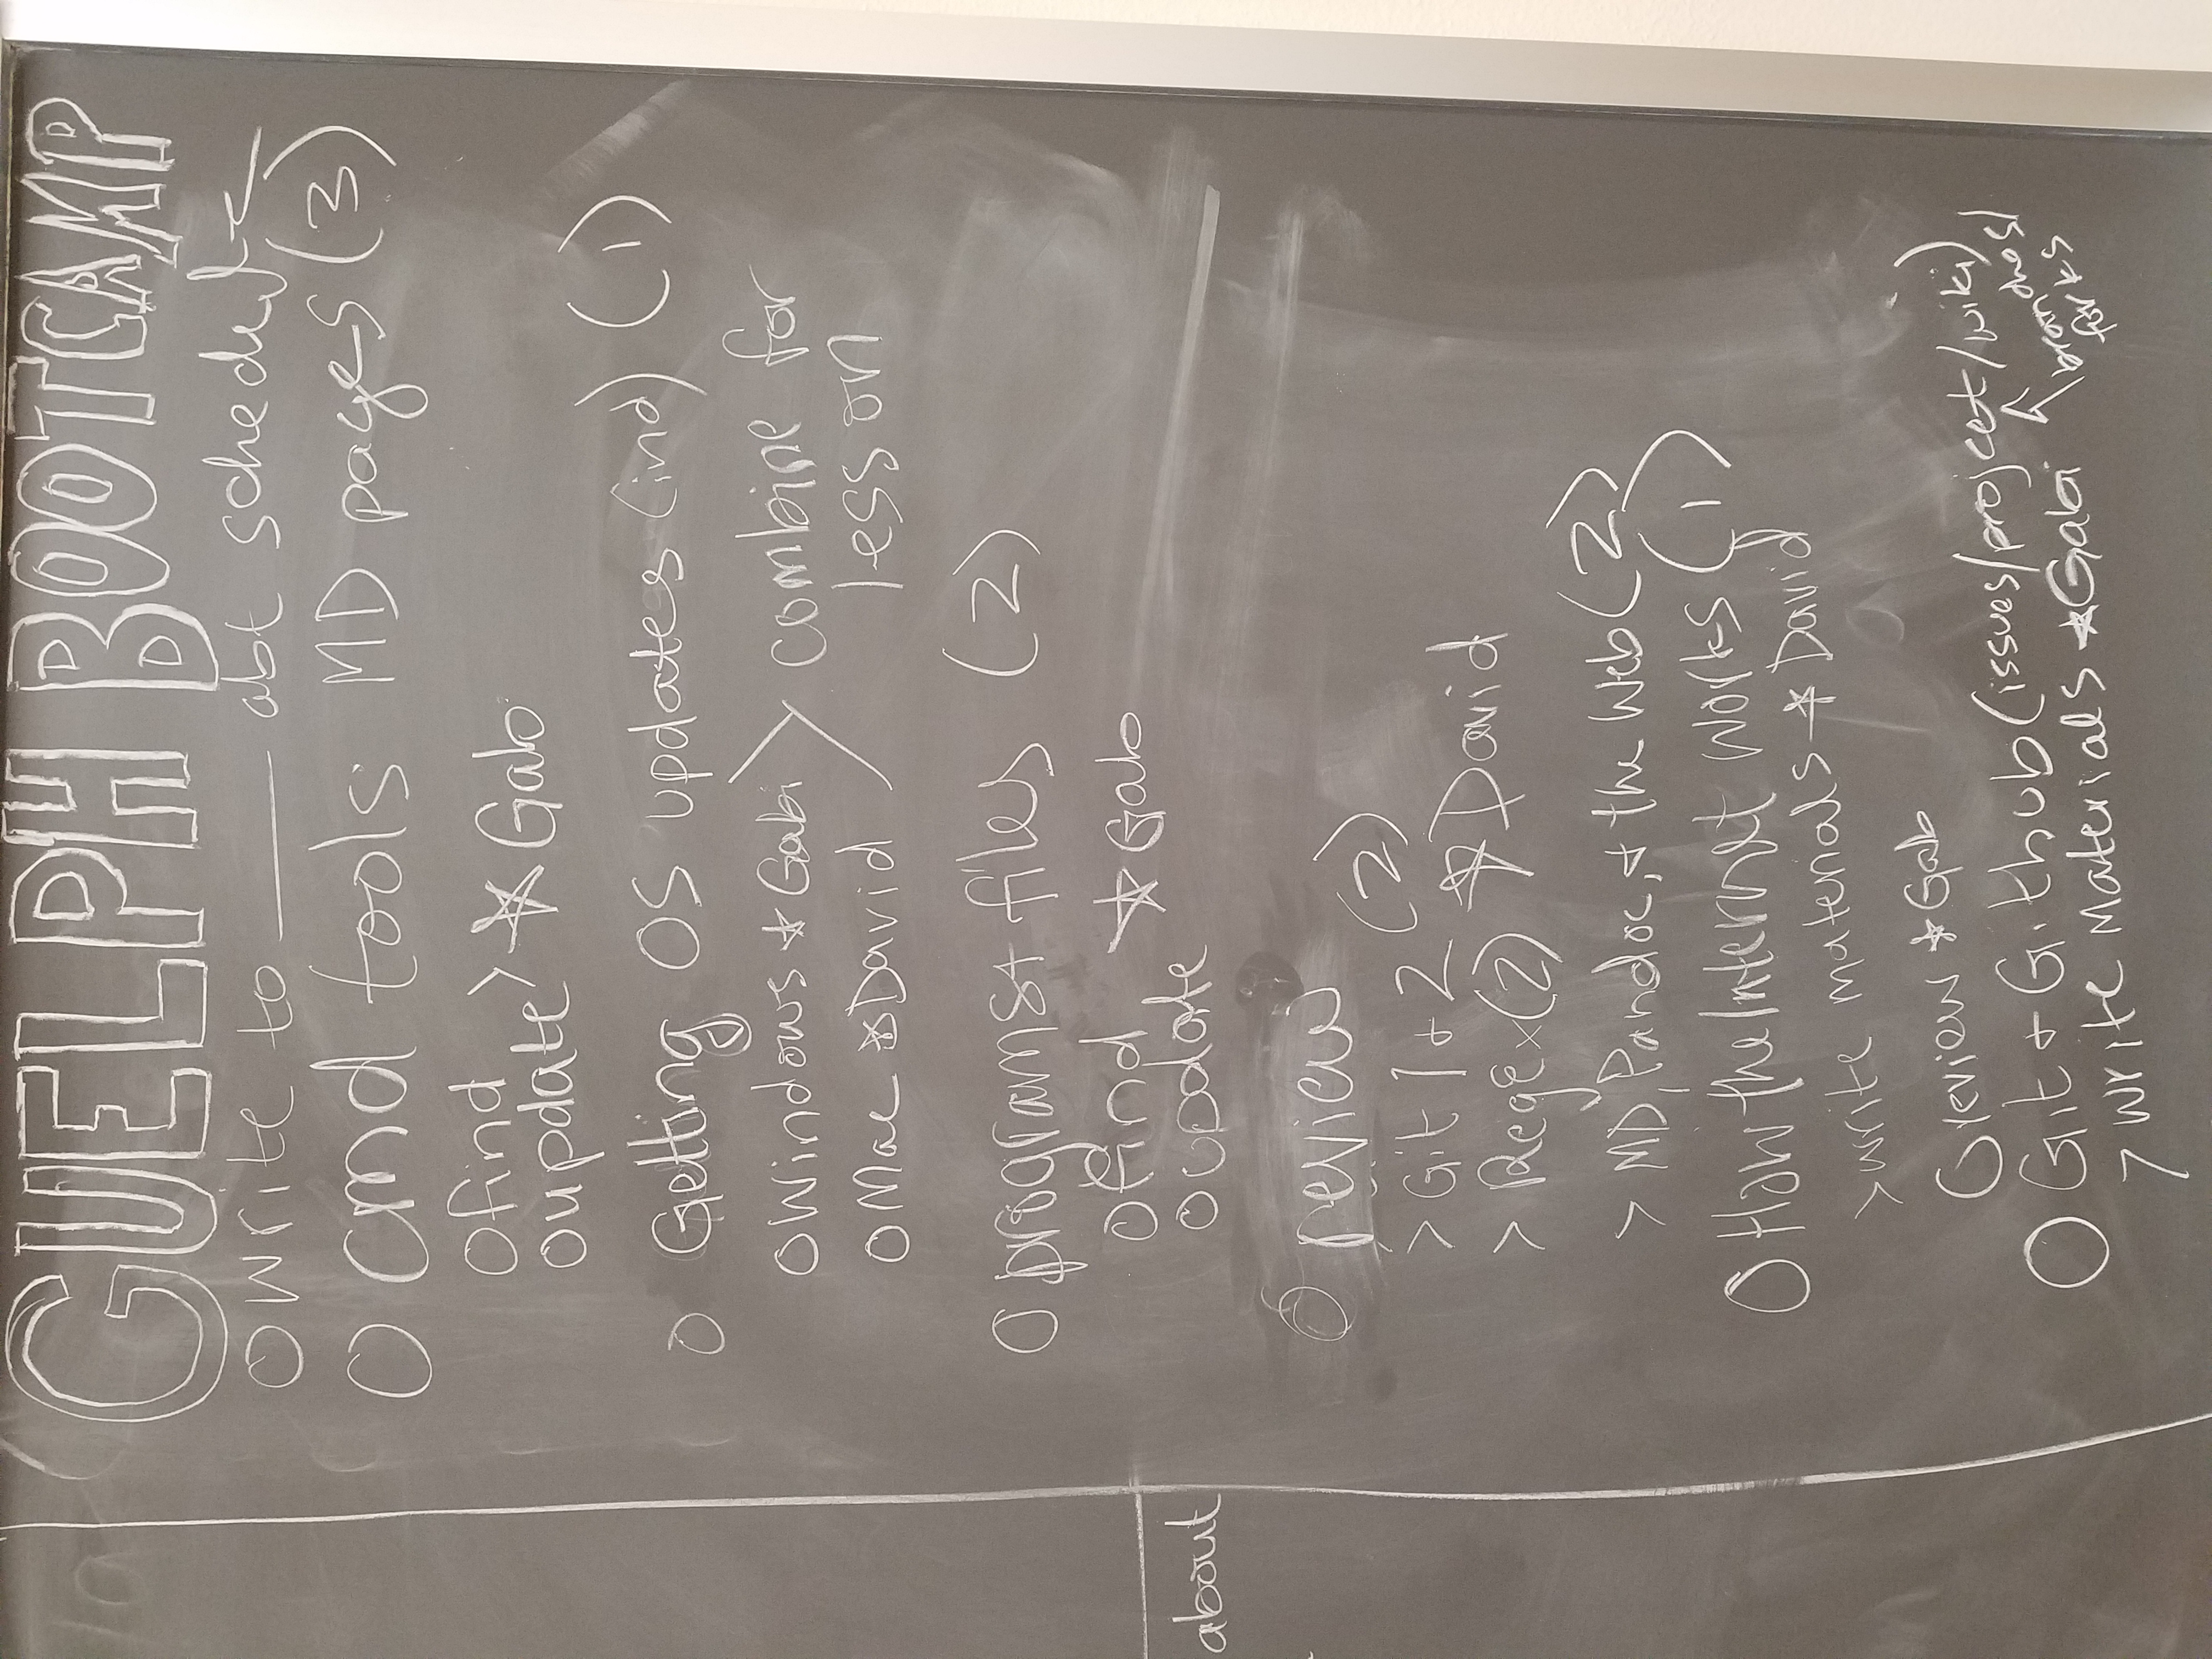 GUELPH BOOTCAMP
O write to ______ abt schedule
O cmd tools MD pages (3)
O find
O update > ☆ Gab
O Getting OS updates (ind) (1)
O Windows ☆ Gabi
O Mac ☆ David > combine for
lesson
O programs + files (2)
O find ☆ Gab
O update
about
O review
> Git 1 + 2 (2)
> RegEx (2) ☆ David
> MD, Pandoc, + the Web (2)
O How the Internet Works (1)
> write materials ☆ David
O review ☆ Gab
O Git + Github (issues/projcet/wiki)
branches/
forks
> write materials ☆ Gabi